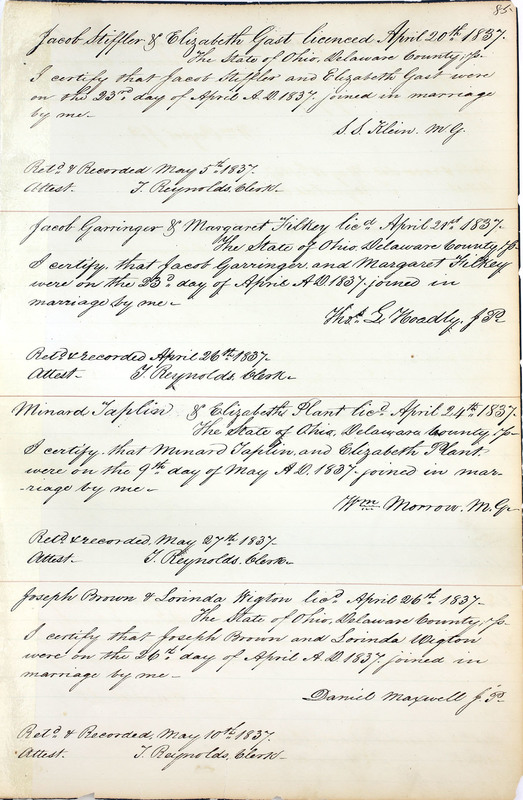 85
Jacob Stiffler & Elizabeth Gast licenced April 20th 1837.
The State of Ohio, Delaware County, ss.
I certify that Jacob Stiffler and Elizabeth Gast were
on the 23rd day of April A.D. 1837. joined in marriage
by me-
S. S. Klein. M. G.
Retd & Recorded May 5th 1837.
Attest. T. Reynolds, Clerk-
Jacob Garringer & Margaret Filkey licd April 21st 1837-
The State of Ohio, Delaware County, ss-
I certify, that Jacob Garringer, and Margaret Filkey
were on the 23d day of April A.D. 1837. joined in
marriage by me-
Thos. G. Hoadly, J P-
Retd & recorded April 26th 1837-
Attest- T. Reynolds, Clerk-
Minard Taplin & Elizabeth Plant licd April 24th 1837.
The State of Ohio, Delaware County, ss-
I certify, that Minard Taplin, and Elizabeth Plant
were on the 9th day of May A.D. 1837. joined in mar-
-riage by me-
Wm Morrow. M. G-
Retd & recorded, May 27th 1837-
Attest- T. Reynolds, Clerk-
Joseph Brown & Lorinda Wigton licd April 26th 1837-
The State of Ohio, Delaware County, ss-
I certify that Joseph Brown and Lorinda Wigton
were on the 26th day of April A.D. 1837. joined in
marriage by me-
Daniel Maxwell J P-
Retd & Recorded, May 10th 1837.
Attest. T. Reynolds, Clerk-